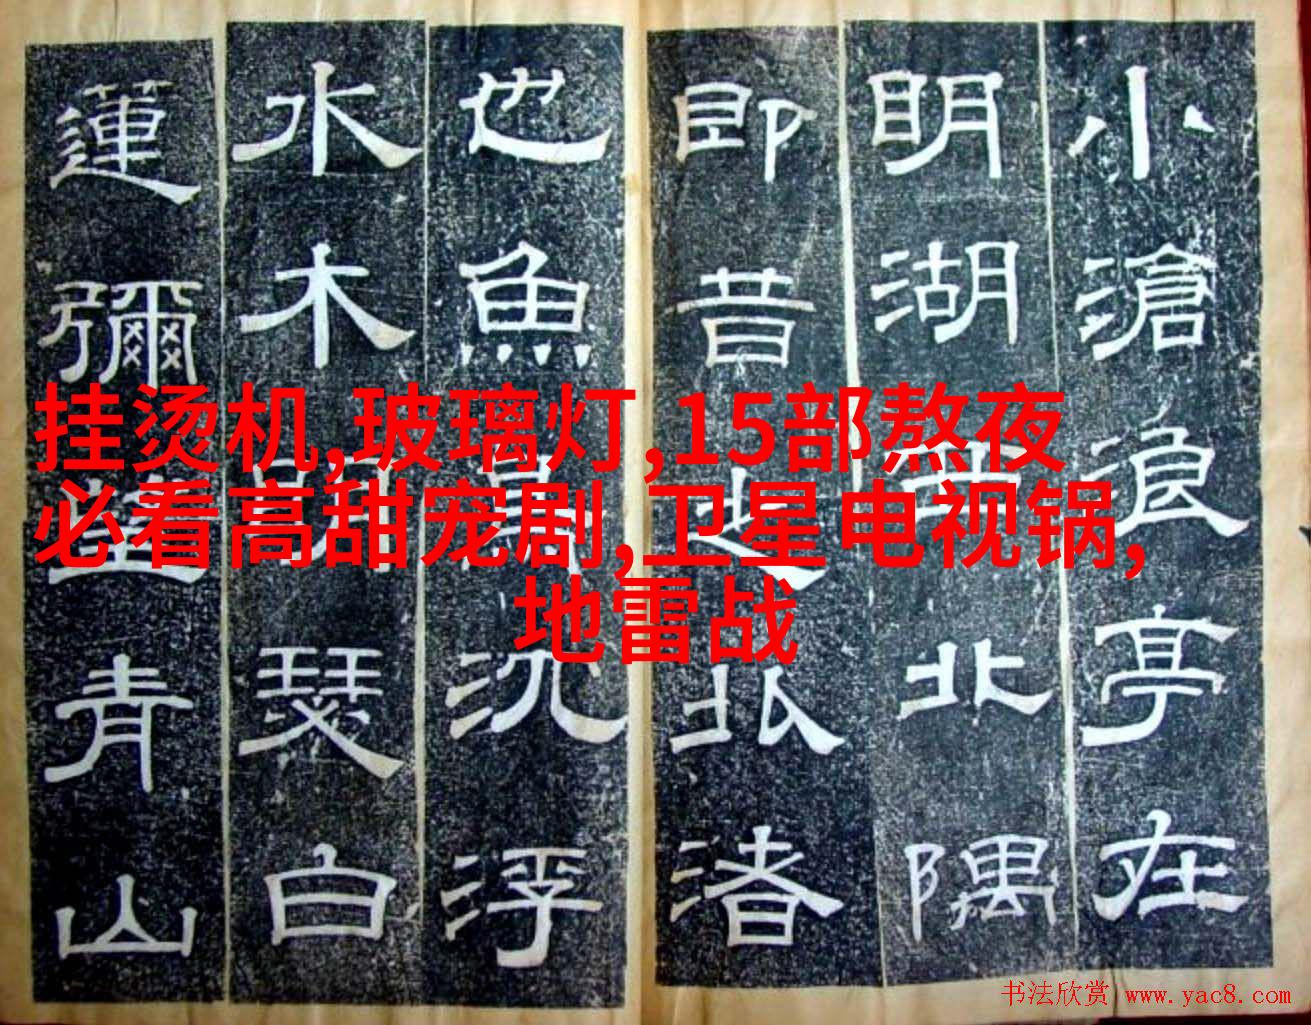 小滄浪亭在
明湖西北隅
即昔之北渚
也魚沉浮
水木明瑟白
蓮彌望青山
挂烫机,玻璃灯,15部熬夜
必看高甜宠剧,卫星电视锅,
地雷战
书法欣赏 www.yac8.com